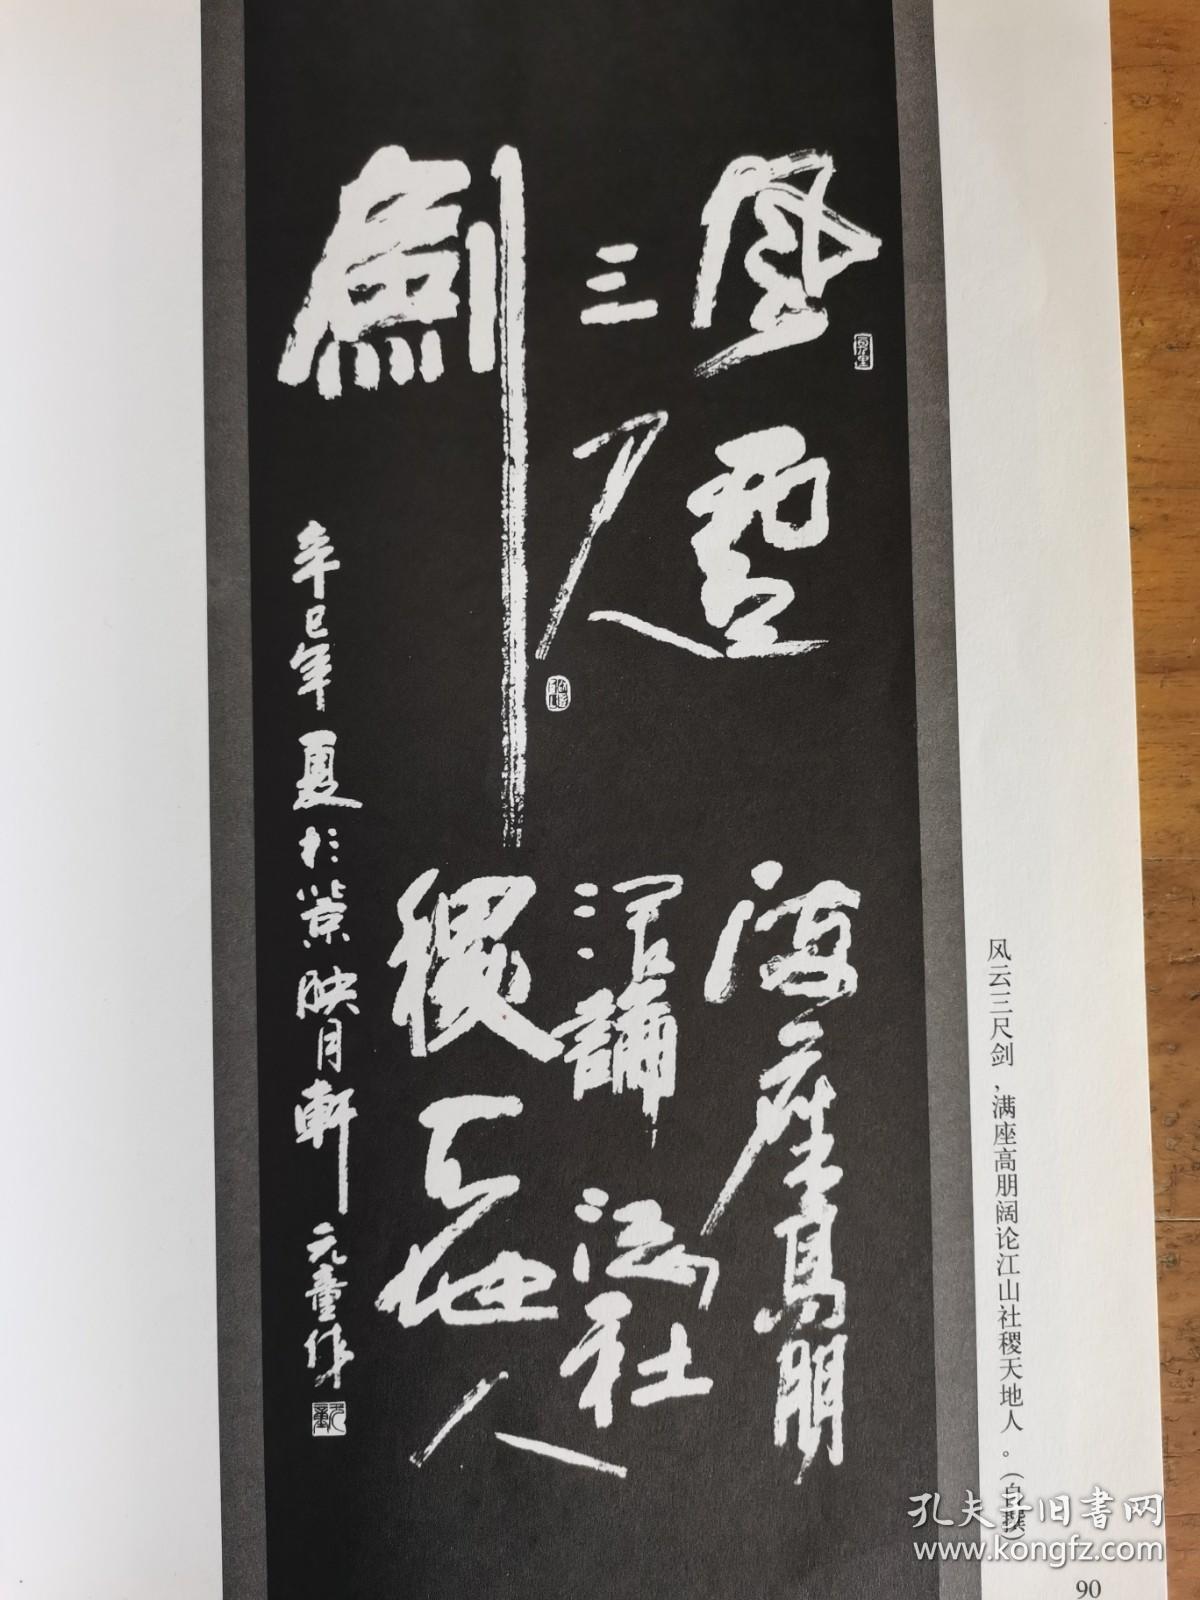 风云三尺剑，满座高朋阔论江山社稷天地人。（自撰）
風雲
三尺
劍
滿座高朋
濶論江山社
稷天地人
辛巳年夏於映月軒元童作
孔夫子旧书网
www.kongfz.com
90